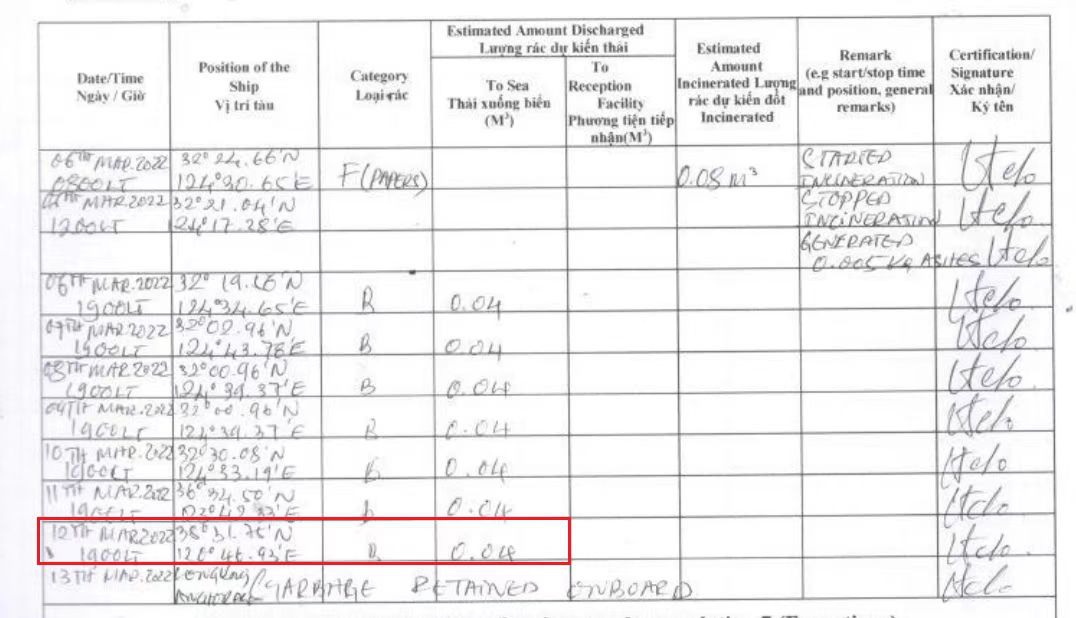 Estimated Amount Discharged
Lượng rác dự kiến thải
Date/Time
Ngày / Giờ
Position of the
Ship
Vị trí tàu
Category
Loại rác
To Sea
Thải xuống biển
(M³)
To
Reception
Facility
Phương tiện tiếp
nhận(M³)
Estimated
Amount
Incinerated Lượng
rác dự kiến đốt
Incinerated
Remark
(e.g start/stop time
and position, general
remarks)
Certification/
Signature
Xác nhận/
Ký tên
06TH MAR.2022 32° 24.66'N STARTED
0800LT 124°30.65'E F(PAPERS) 0.08 M³ INCINERATION
MAR.2022 32°21.04'N STOPPED
1200LT 124°17.28'E INCINERATION
GENERATED
0.005 Kg ASHES
06TH MAR.2022 32° 19.16'N
1900LT 124°34.65'E B 0.04
07TH MAR.2022 32°02.96'N
1900LT 124°43.78'E B 0.04
08TH MAR.2022 32°00.96'N
1900LT 124°39.37'E B 0.04
09TH MAR.2022 32°00.96'N
1900LT 124°39.37'E B 0.04
10TH MAR.2022 32°30.08'N
1900LT 124°33.19'E B 0.04
11TH MAR.2022 36°34.50'N
1900LT B 0.04
12TH MAR2022 38°31.75'N
1900LT 120°46.93'E B 0.04
13TH MAR.2022
ANCHORAGE GARBAGE RETAINED ONBOARD